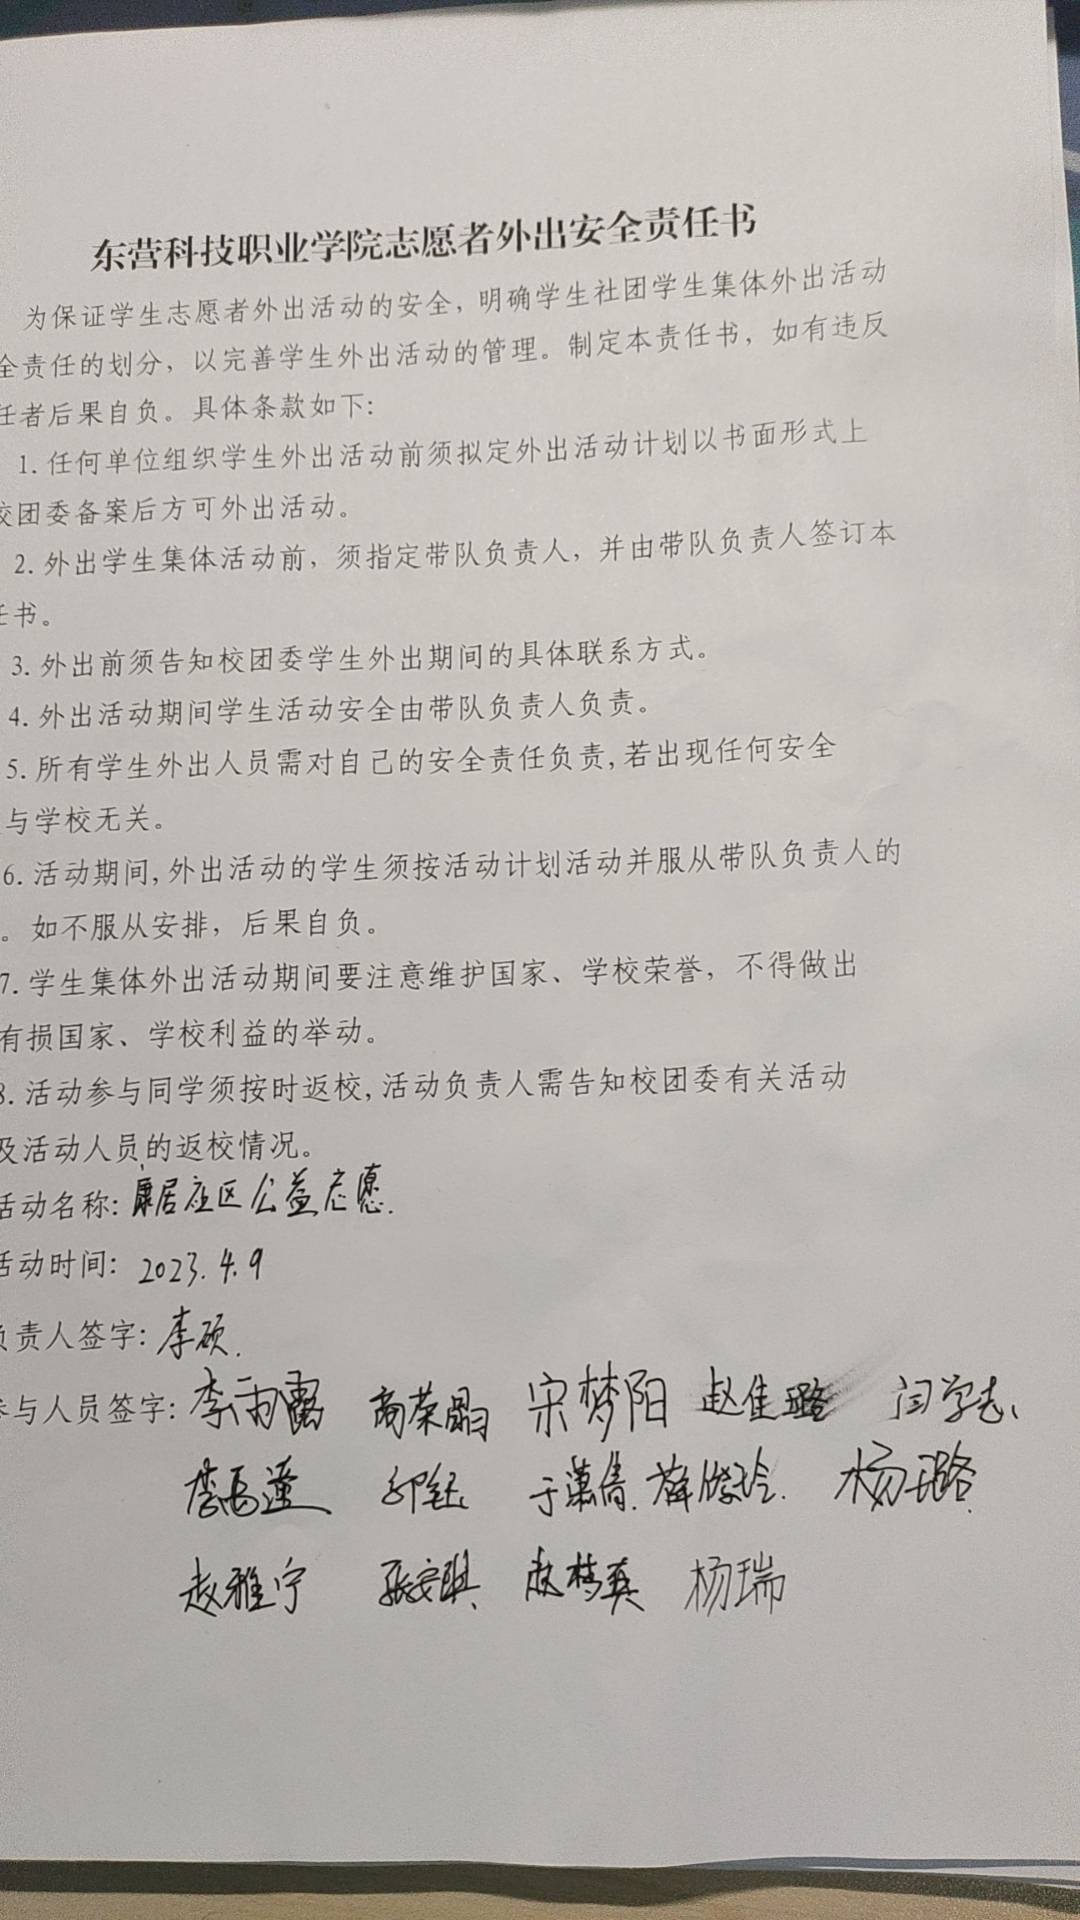 东营科技职业学院志愿者外出安全责任书
为保证学生志愿者外出活动的安全，明确学生社团学生集体外出活动
全责任的划分，以完善学生外出活动的管理。制定本责任书，如有违反
任者后果自负。具体条款如下：
1. 任何单位组织学生外出活动前须拟定外出活动计划以书面形式上
校团委备案后方可外出活动。
2. 外出学生集体活动前，须指定带队负责人，并由带队负责人签订本
任书。
3. 外出前须告知校团委学生外出期间的具体联系方式。
4. 外出活动期间学生活动安全由带队负责人负责。
5. 所有学生外出人员需对自己的安全责任负责，若出现任何安全
与学校无关。
6. 活动期间，外出活动的学生须按活动计划活动并服从带队负责人的
。如不服从安排，后果自负。
7. 学生集体外出活动期间要注意维护国家、学校荣誉，不得做出
有损国家、学校利益的举动。
8. 活动参与同学须按时返校，活动负责人需告知校团委有关活动
及活动人员的返校情况。
活动名称：康居社区公益志愿.
活动时间：2023.4.9
负责人签字：李硕.
参与人员签字：李雨露 高荣晶 宋梦阳 赵佳璐 闫学志
于潇倩. 杨璐.
赵雅宁 张安琪 赵梦真 杨瑞